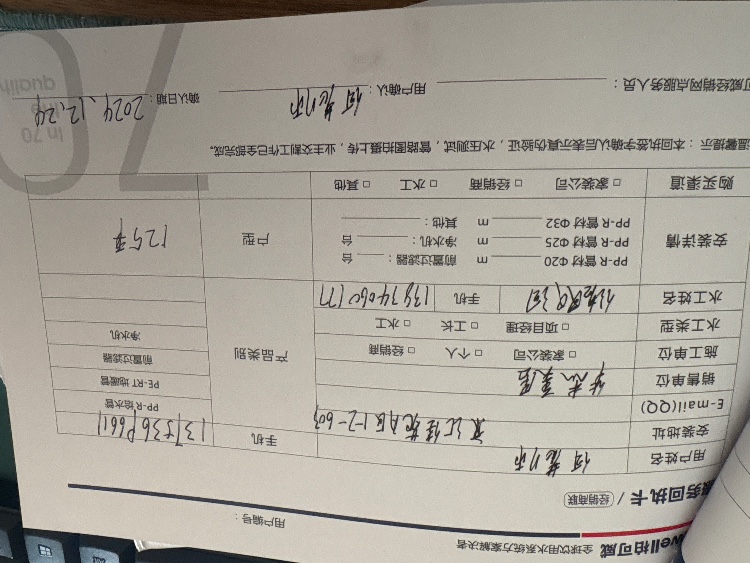 well柏可威 全球饮用水系统方案解决者
服务回执卡 / (经销商联) 用户编号：
用户姓名 手机
安装地址 A区1-2-603
E-mail(QQ)
销售单位
施工单位 □ 家装公司 □ 个人 □ 经销商
水工类型 □ 项目经理 □ 工长 □ 水工
水工姓名 手机
产品类别
PP-R给水管
PE-RT地暖管
前置过滤器
净水机
安装详情
PP-R 管材 Φ20 m 前置过滤器： 台
PP-R 管材 Φ25 m 净水机： 台
PP-R 管材 Φ32 m 其他：
户型 125平
购买渠道 □ 家装公司 □ 经销商 □ 水工 □ 其他
温馨提示：本回执签字确认后表示真伪验证，水压测试，管路图拍摄上传，业主交割工作已全部完成。
可威经销网点服务人员： 用户确认： 确认日期：2024.12.24
70
In 70
the
quality